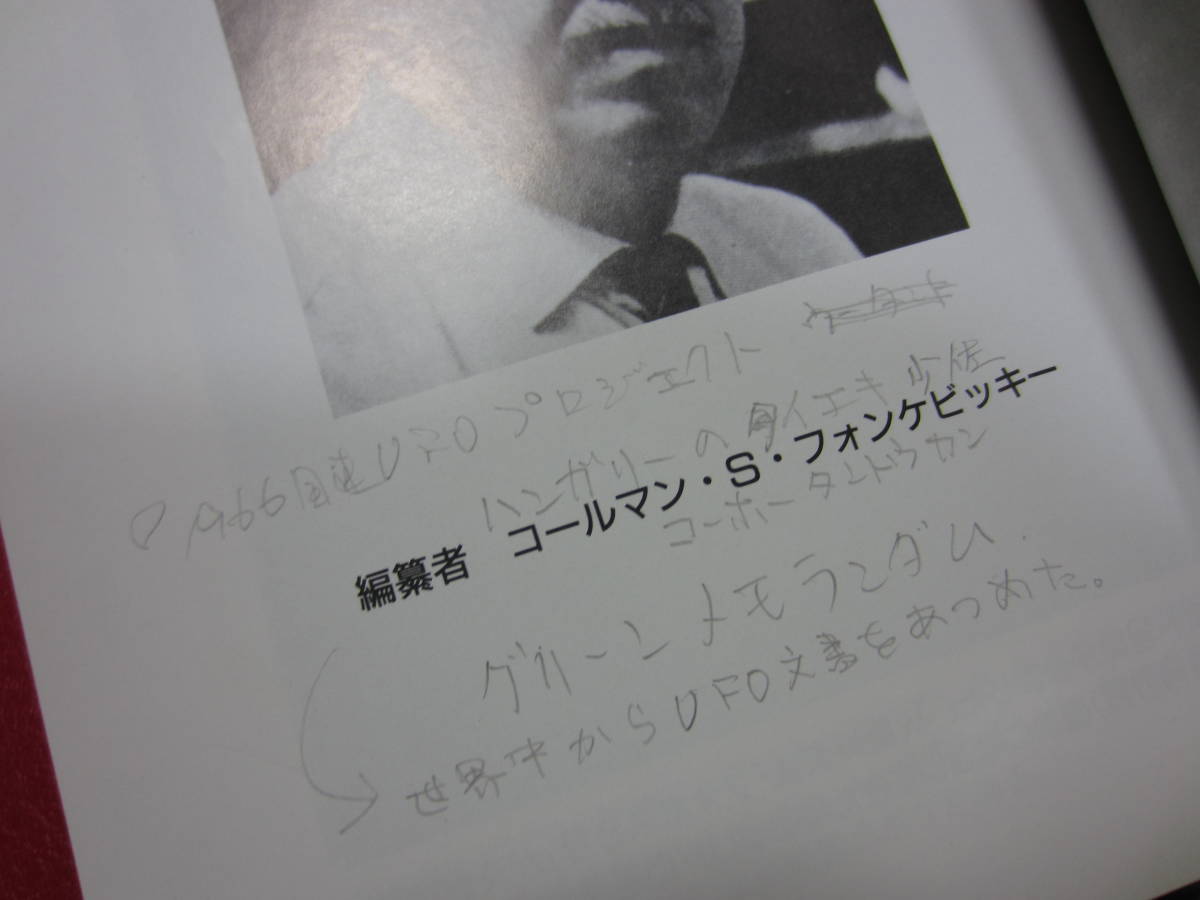 1966国連UFOプロジェクト
ハンガリーの 少佐
編纂者 コールマン・S・フォンケビッキー
コーホータンドウカン
グリーンメモランダム.
世界中からUFO文書をあつめた。